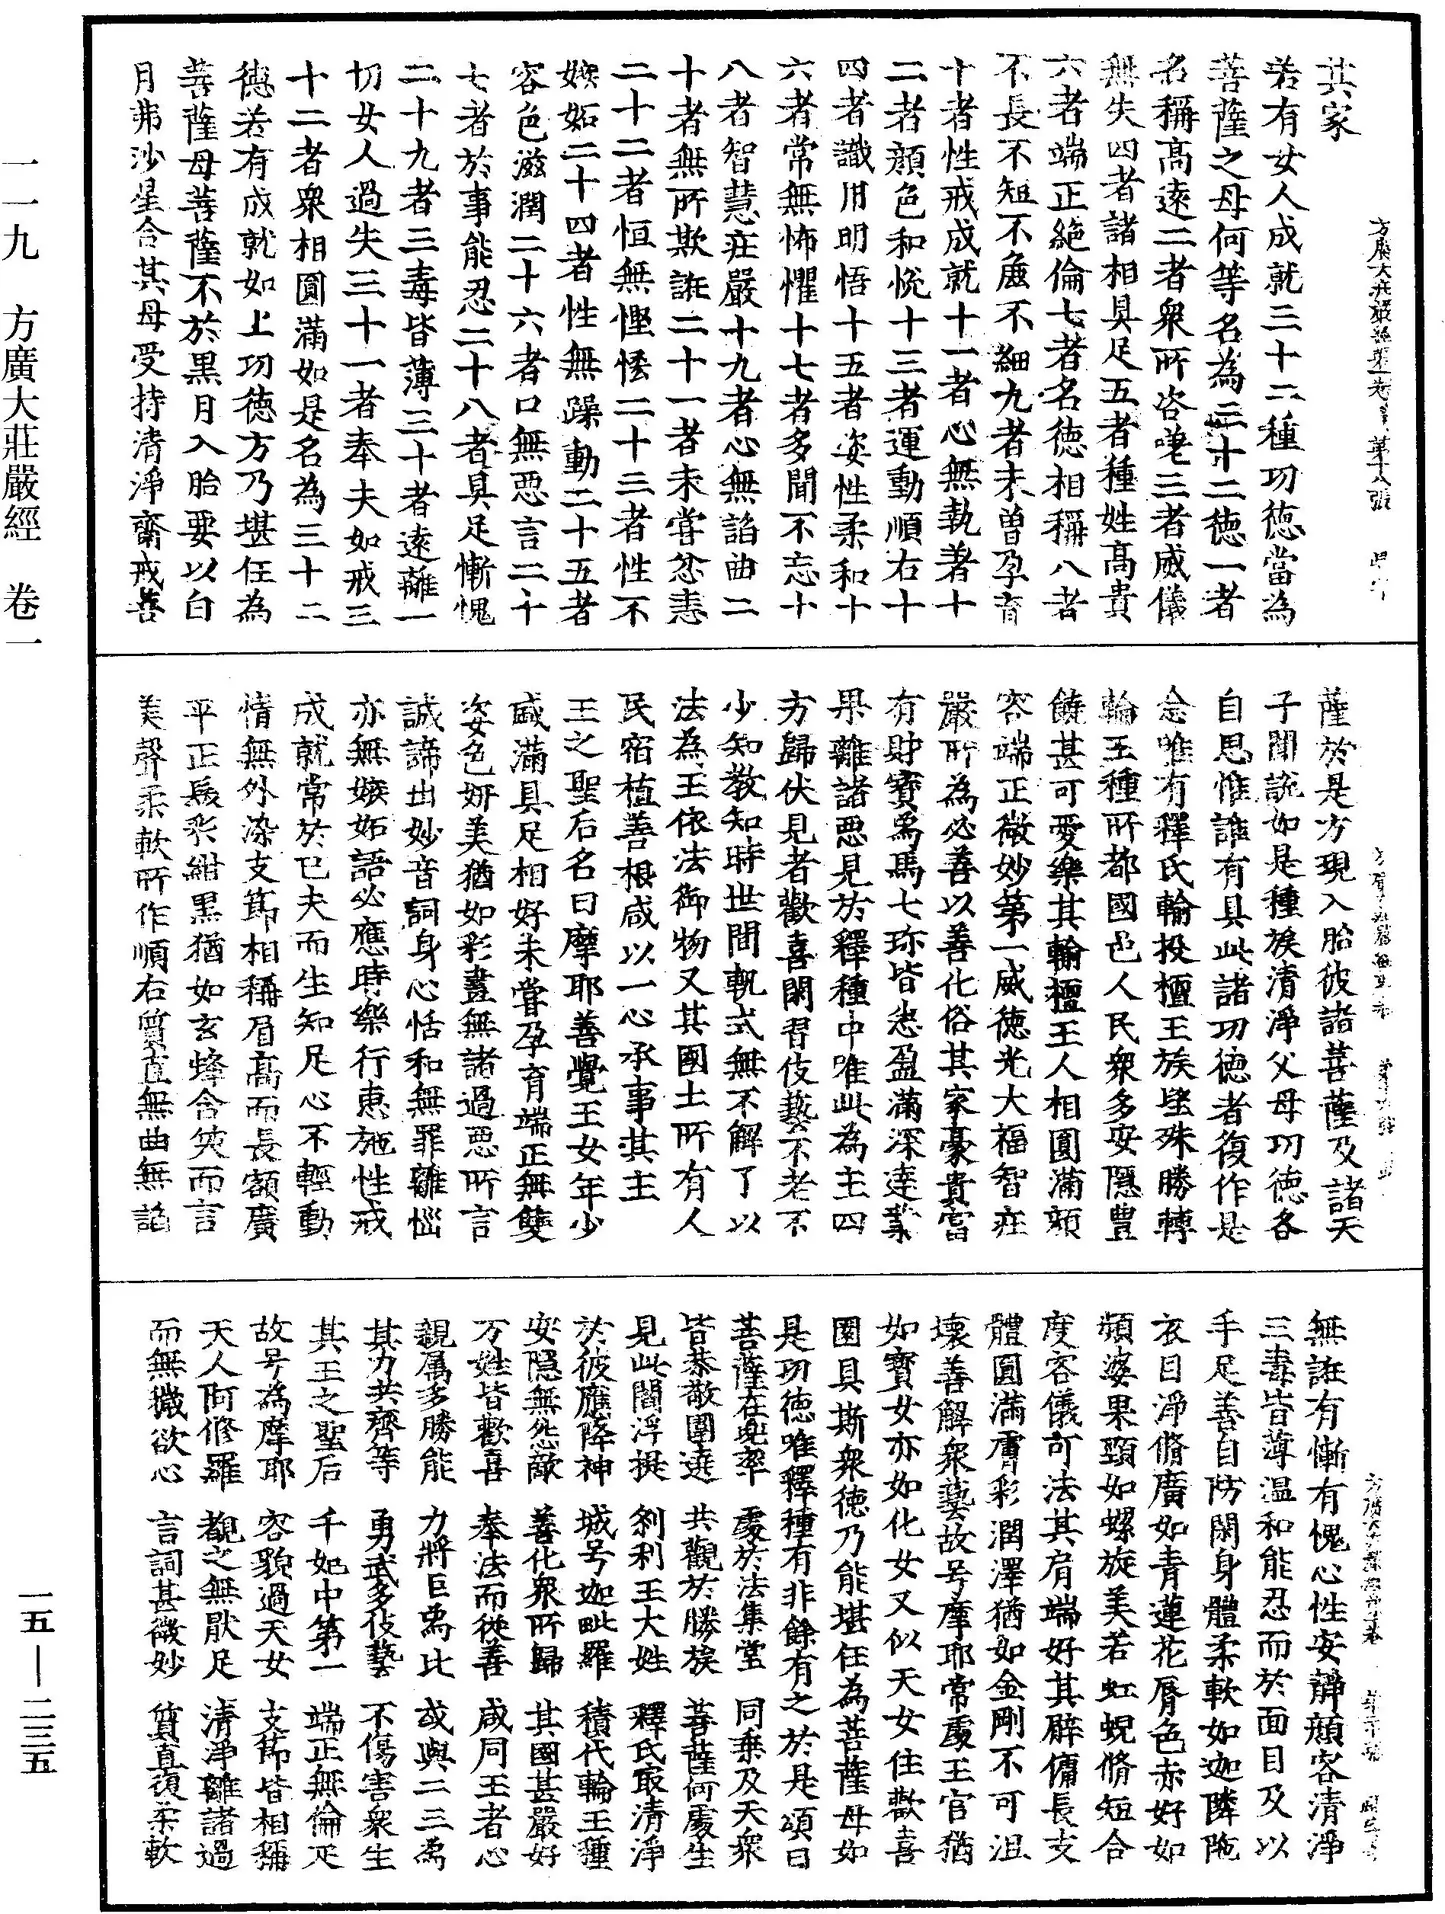 其家
若有女人成就三十二種功德當為
菩薩之母何等名為三十二德一者
名稱高遠二者衆所咨嗟三者威儀
無失四者諸相具足五者種姓高貴
六者端正絶倫七者名德相稱八者
不長不短不麁不細九者未曽孕育
十者性戒成就十一者心無執著十
二者顔色和悅十三者運動順右十
四者識用明悟十五者姿性柔和十
六者常無怖懼十七者多聞不忘十
八者智慧莊嚴十九者心無諂曲二
十者無所欺誑二十一者未嘗忿恚
二十二者恒無慳悋二十三者性不
嫉妬二十四者性無躁動二十五者
容色滋潤二十六者口無惡言二十
七者於事能忍二十八者具足慚愧
二十九者三毒皆薄三十者遠離一
切女人過失三十一者奉夫如戒三
十二者衆相圓滿如是名為三十二
德若有成就如上功德方乃堪任為
菩薩母菩薩不於黒月入胎要以白
月弗沙星合其母受持清淨齋戒菩
薩於是方現入胎彼諸菩薩及諸天
子聞說如是種族清淨父母功德各
自思惟誰有具此諸功德者復作是
念唯有釋氏輸投檀王族望殊勝轉
輪王種所都國邑人民衆多安隱豊
饒甚可愛樂其輸檀王人相圓滿顔
容端正微妙第一威德光大福智莊
嚴所為必善以善化俗其家豪貴冨
有財寶爲馬七珎皆悉盈滿深達業
果離諸惡見於釋種中唯此為主四
方歸伏見者歡喜閑習伎藝不老不
少知教知時世間軌式無不解了以
法為王依法御物又其國土所有人
民宿植善根咸以一心承事其主
王之聖后名曰摩耶善覺王女年少
盛滿具足相好未嘗孕育端正無雙
姿色妍美猶如彩畫無諸過惡所言
誠諦出妙音詞身心恬和無罪離惱
亦無嫉妬語必應時樂行惠施性戒
成就常於已夫而生知足心不輕動
情無外染支節相稱眉髙而長額廣
平正髮彩紺黒猶如玄蜂含笑而言
美聲柔軟所作順右質直無曲無諂
無誑有慚有愧心性安靜顔容清淨
三毒皆薄温和能忍而於面目及以
手足善自防閑身體柔軟如迦隣陁
衣目淨脩廣如青蓮花脣色赤好如
頻婆果頸如螺旋美若虹蜺脩短合
度容儀可法其肩端好其臂傭長支
體圓滿膚彩潤澤猶如金剛不可沮
壞善解衆藝故号摩耶常處王宫猶
如寶女亦如化女又似天女住歡喜
園具斯衆德乃能堪任為菩薩母如
是功德唯釋種有非餘有之於是頌曰
菩薩在兜率 處於法集堂 同乗及天衆
皆恭敬圍遶 共觀於勝族 菩薩何處生
見此閻浮提 刹利王大姓 釋氏最清淨
於彼應降神 城号迦毗羅 積代輪王種
安隱無怨敵 善化衆所歸 其國甚嚴好
万姓皆歡喜 奉法而從善 咸同王者心
親属多勝能 力將巨爲比 或與二三爲
其力共齊等 勇武多伎藝 不傷害衆生
其王之聖后 千妃中第一 端正無倫疋
故号為摩耶 容貌過天女 支節皆相稱
天人阿修羅 覩之無猒足 清淨離諸過
而無穢欲心 言詞甚微妙 質直復柔軟
一一九 方廣大莊嚴經 卷一
一五—二三五